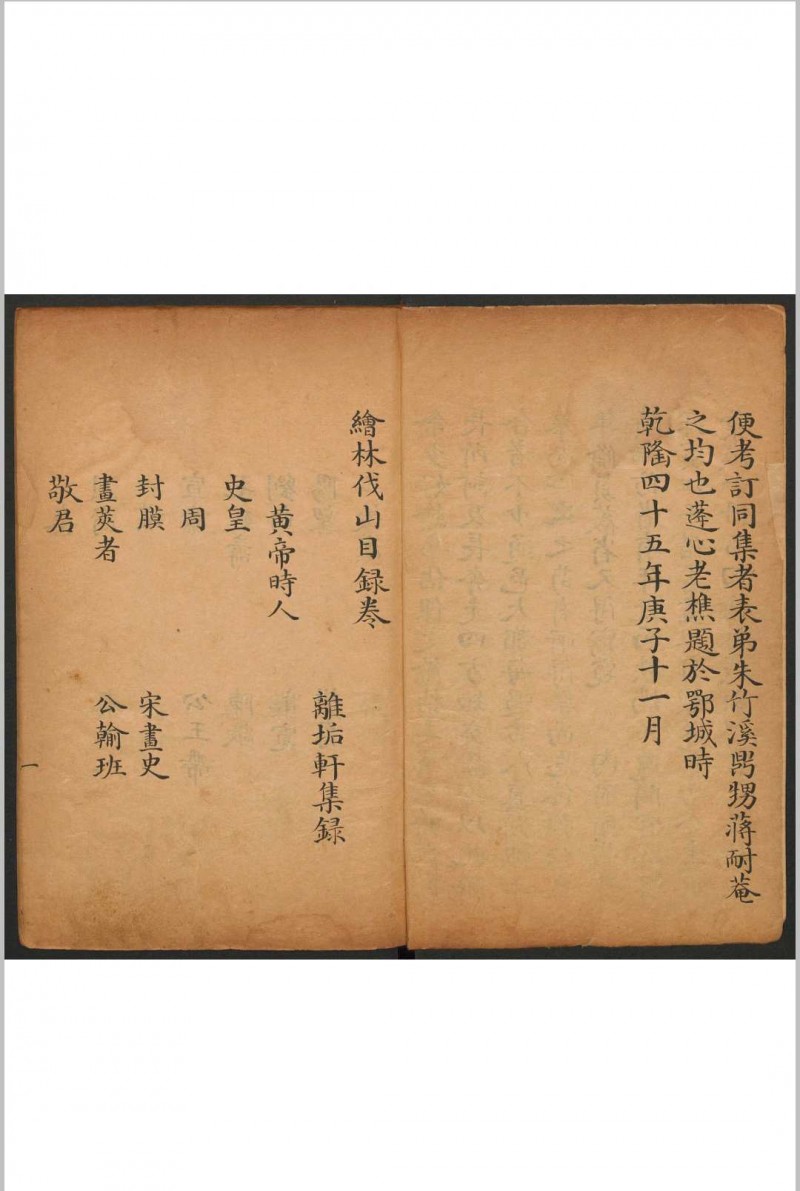 便考訂同集者表弟朱竹溪門甥蔣耐菴
之均也蓬心老樵題於鄂城時
乾隆四十五年庚子十一月
繪林伐山目録卷
離垢軒集録
黄帝時人
史皇
周
封膜
宋畫史
畫莢者
公輸班
敬君
一